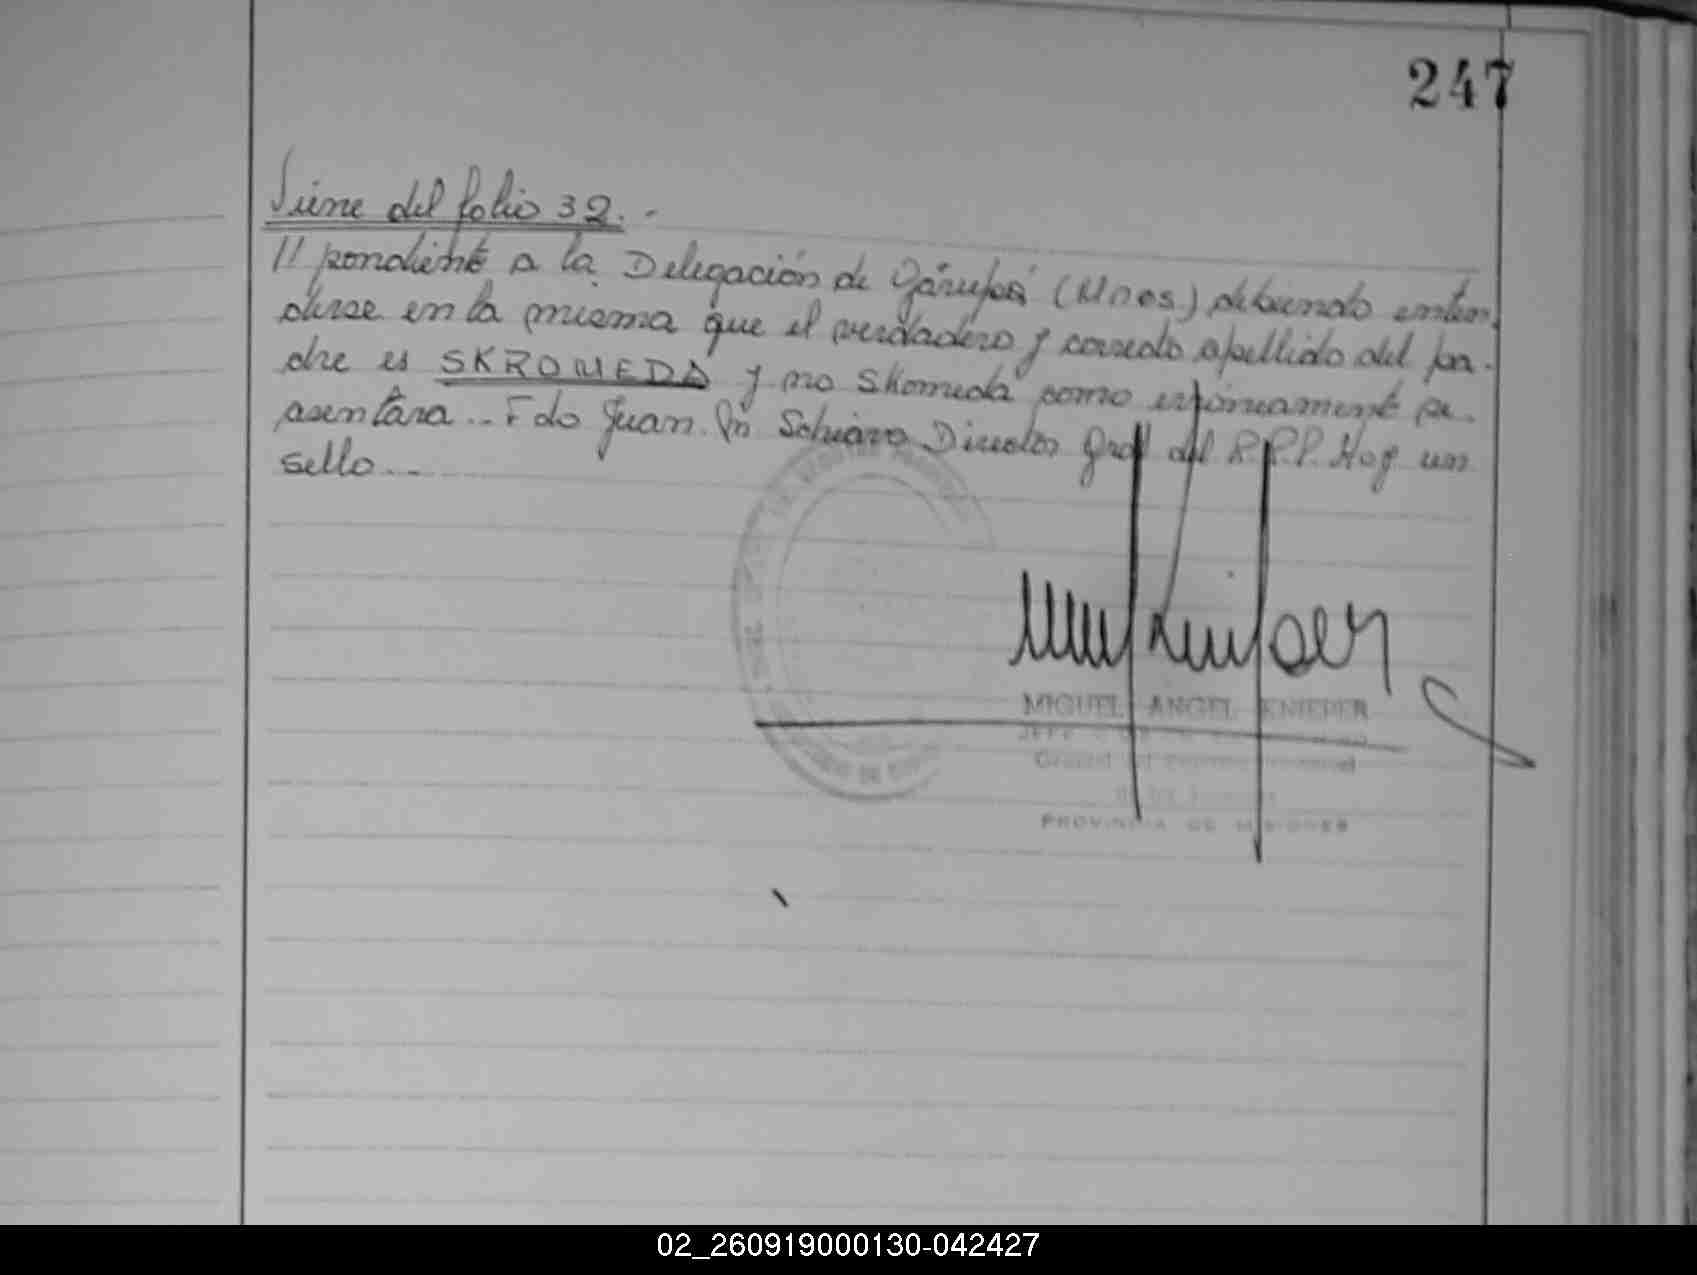 247
Viene del folio 32.-
// pondiente a la Delegación de Garupá (Mnes.) debiendo enten.
derse en la misma que el verdadero y correcto apellido del pa.
dre es SKROMEDA y no Skomeda como erróneamente se.
asentára.. Fdo Juan. Schiavo Director Gral del R.P.P. Hay un
sello...
MIGUEL ANGEL KNIEPER
PROVINCIA DE MISIONES
02_260919000130-042427